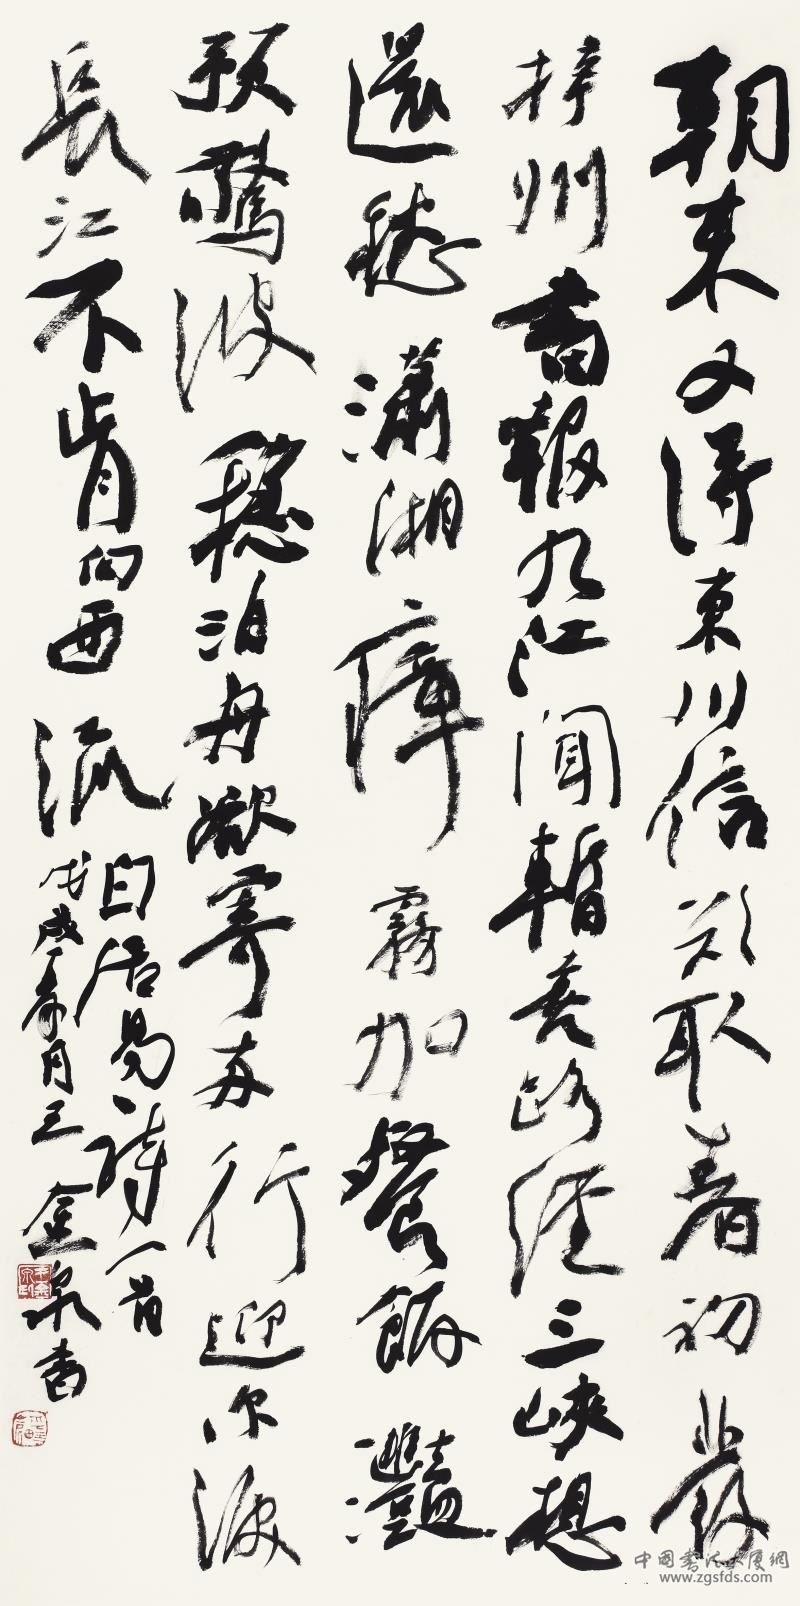 朝来又得東川信欲取春初發
梓州書報九江聞暫喜路經三峡想
還愁瀟湘瘴霧加餐飯灩
預驚波穩泊舟欲寄兩行迎尔淚
長江不肯向西流
白居易詩一首
戊戌月王金泉書
中国書法大厦網
www.zgsfds.com